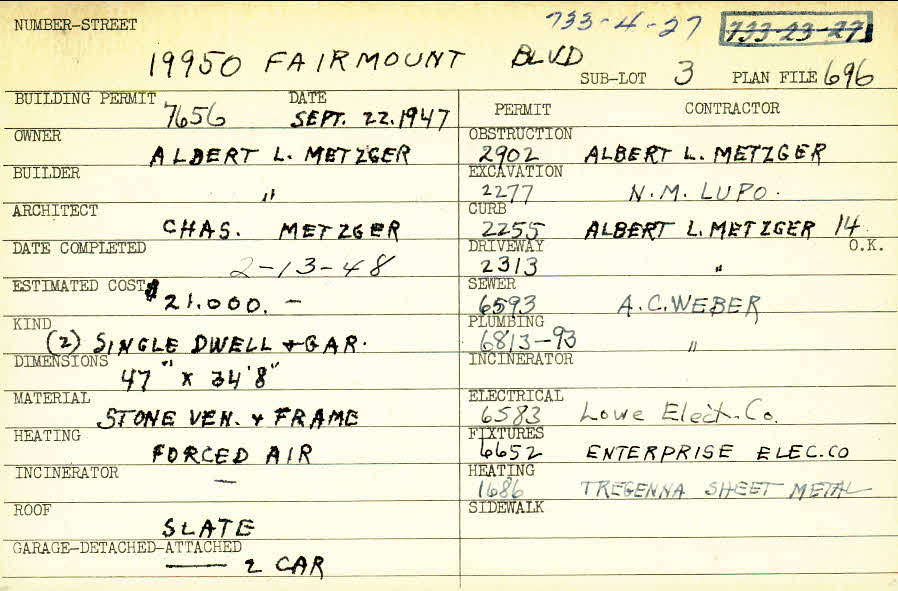 NUMBER-STREET 733-4-27 733-23-27
19950 FAIRMOUNT BLVD
SUB-LOT 3 PLAN FILE 696
BUILDING PERMIT 7656 DATE SEPT. 22.1947
OWNER ALBERT L. METZGER
BUILDER "
ARCHITECT CHAS. METZGER
DATE COMPLETED 2-13-48
ESTIMATED COST $21.000.-
KIND (2) SINGLE DWELL + GAR.
DIMENSIONS 47" x 34'8"
MATERIAL STONE VEN. + FRAME
HEATING FORCED AIR
INCINERATOR —
ROOF SLATE
GARAGE-DETACHED-ATTACHED 2 CAR
PERMIT CONTRACTOR
OBSTRUCTION 2902 ALBERT L. METZGER
EXCAVATION 2277 N.M. LUPO.
CURB 2255 ALBERT L. METZGER 14 O.K.
DRIVEWAY 2313 "
SEWER 6593 A.C. WEBER
PLUMBING 6813-93 "
INCINERATOR
ELECTRICAL 6583 Lowe Elect. Co.
FIXTURES 6652 ENTERPRISE ELEC.CO
HEATING 1686 TREGENNA SHEET METAL
SIDEWALK